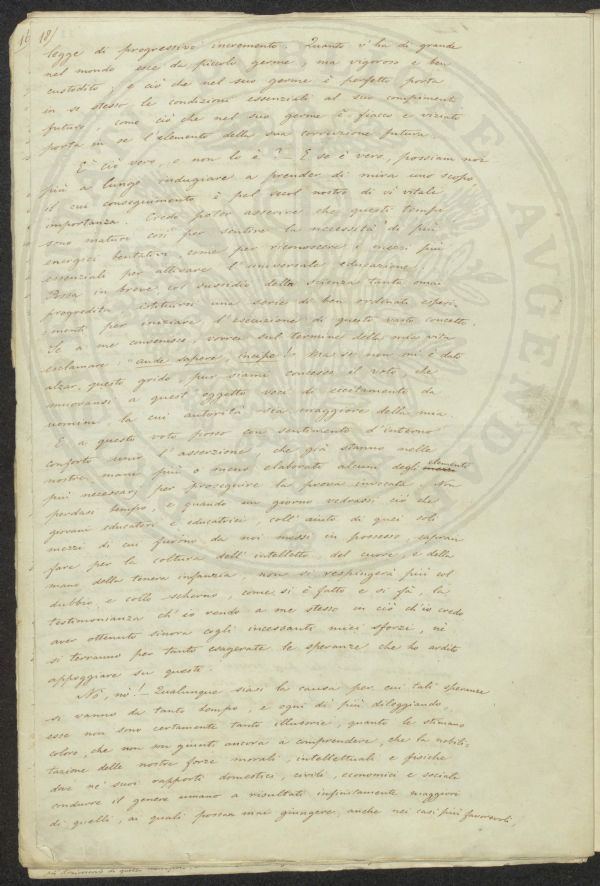 16 18/
legge di progressivo incremento. Quanto v'ha di grande
nel mondo esce da piccolo germe, ma vigoroso e ben
custodito; e ciò che nel suo germe è perfetto porta
in se stesso le condizioni essenziali al suo compimento
futuro come ciò che nel suo germe è fiacco e viziato
porta in se l'elemento della sua corruzione futura.
E ciò vero, o non lo è? – E se è vero, possiam noi
più a lungo indugiare a prender di mira uno scopo
il cui conseguimento è pel secol nostro di vitale
importanza. Credo poter asserire che questi tempi
sono maturi così per sentire la necessità di più
energici tentativi, come per riconoscere i mezzi più
essenziali per attivare l'universale educazione.
Possa in breve col sussidio della scienza tanto omai
progredita istituirsi una serie di ben ordinati esperi-
menti per iniziare l'esecuzione di questo vasto concetto.
Se a me convenisse, vorrei sul termine della mia vita
esclamare: "aude sapere, incipe"! Ma se non mi è dato
alzar questo grido, pur siami concesso il voto che
muovansi a quest'oggetto voci di eccitamento da
uomini, la cui autorità sia maggiore della mia.
E a questo voto posso con sentimento d'interno
conforto unir l'asserzione che già stanno nelle
nostre mani più o meno elaborati alcuni degli elementi
più necessarj per proseguire la prova invocata. Non
perdasi tempo, e quando un giorno vedrassi ciò che
giovani educatori e educatrici, coll'aiuto di quei soli
mezzi di cui furono da noi messi in possesso, sapran
fare per la coltura dell'intelletto, del cuore, e della
mano della tenera infanzia, non si respingerà più col
dubbio e collo scherno, come si è fatto e si fà, la
testimonianza ch'io rendo a me stesso in ciò ch'io credo
aver ottenuto sinora cogli incessanti miei sforzi, nè
si terranno per tanto esagerate le speranze che ho ardito
appoggiare su questi.
No, no! – Qualunque siasi la causa per cui tali speranze
si vanno da tanto tempo, e ogni dì più dileggiando,
esse non sono certamente tanto illusorie, quanto le stimano
coloro, che non son giunti ancora a comprendere, che la nobili-
tazione delle nostre forze morali, intellettuali e fisiche
dee ne' suoi rapporti domestici, civili, economici e sociali
condurre il genere umano a risultati infinitamente maggiori
di quelli, ai quali possan mai giungere, anche nei casi più favorevoli,
AVGENDA